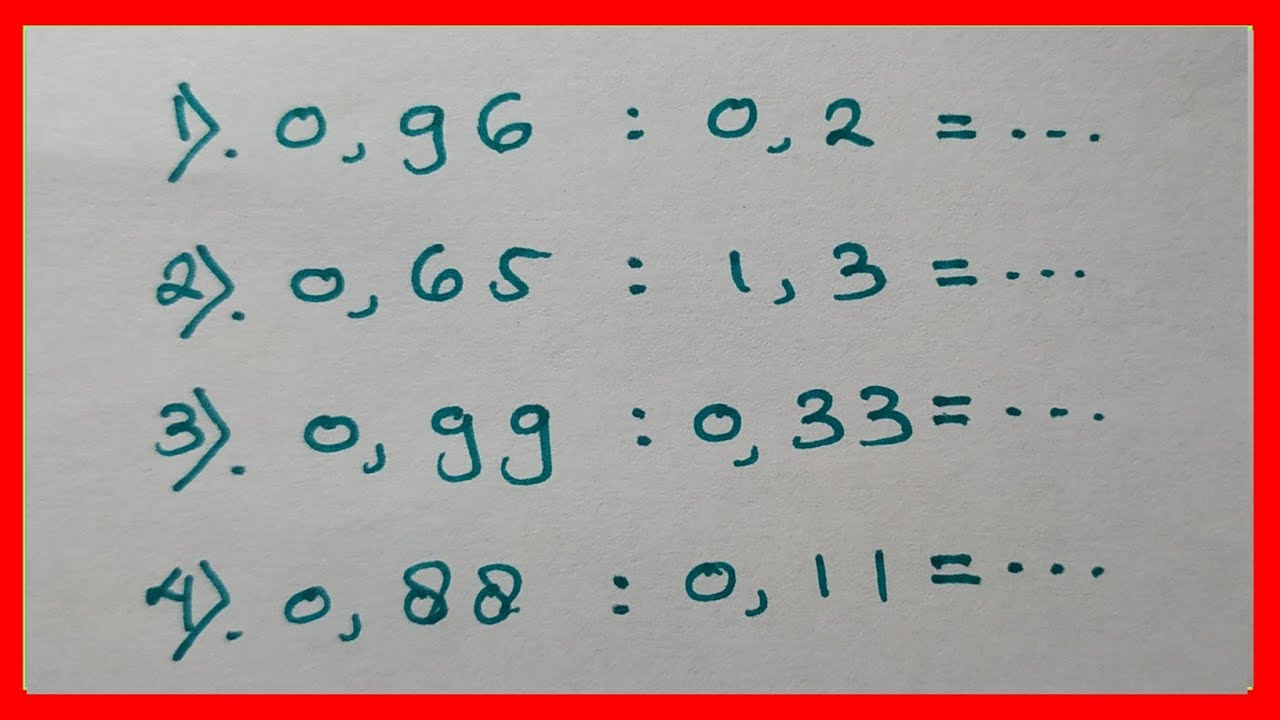 1). 0,96 : 0,2 = ...
2). 0,65 : 1,3 = ...
3). 0,99 : 0,33 = ...
4). 0,88 : 0,11 = ...